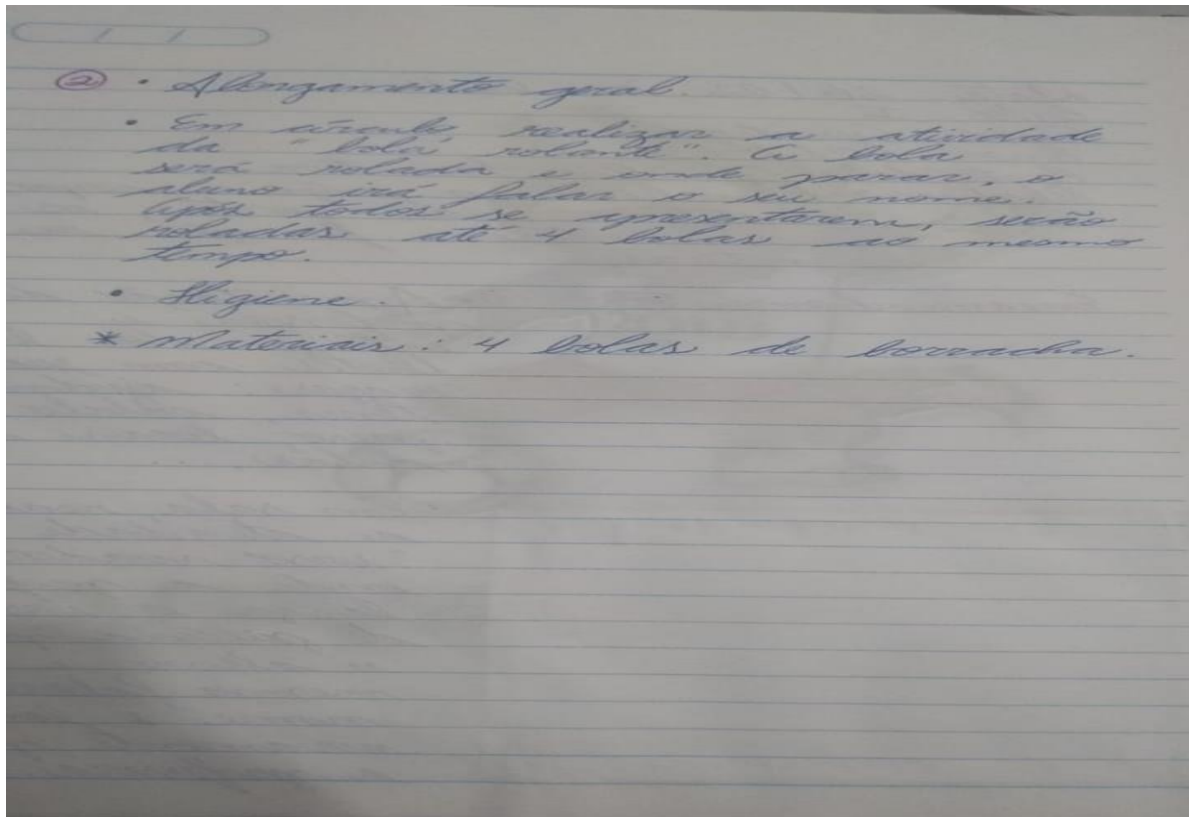 ② • Alongamento geral.
• Em círculo realizar a atividade
da "bola rolante". A bola
será rolada e onde parar, o
aluno irá falar o seu nome.
Após todos se apresentarem, serão
roladas até 4 bolas ao mesmo
tempo.
• Higiene.
* Materiais: 4 bolas de borracha.